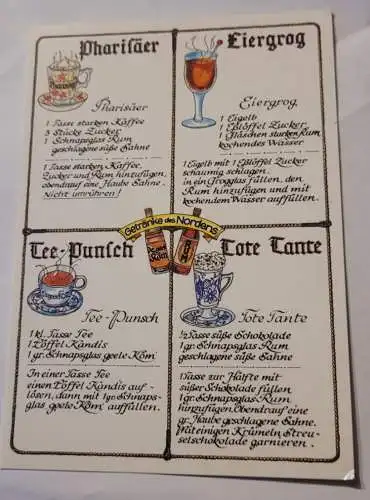 Pharisäer
Pharisäer
1 Tasse starken Kaffee
3 Stücke Zucker
1 Schnapsglas Rum
geschlagene süße Sahne
1 Tasse starken Kaffee,
Zucker und Rum hinzufügen,
obendrauf eine Haube Sahne.
Nicht umrühren!
Eiergrog
Eiergrog
1 Eigelb
1 Eßlöffel Zucker
1 Gläschen starken Rum
kochendes Wasser
1 Eigelb mit 1 Eßlöffel Zucker
schaumig schlagen,
in ein Grogglas füllen, den
Rum hinzufügen und mit
kochendem Wasser auffüllen.
Getränke des Nordens
RUM
Tee-Punsch
Tee-Punsch
1 kl. Tasse Tee
1 Löffel Kandis
1 gr. Schnapsglas geele Köm
In einer Tasse Tee
einen Löffel Kandis auf-
lösen, dann mit 1 gr. Schnaps-
glas geele Köm auffüllen.
Tote Tante
Tote Tante
½ Tasse süße Schokolade
1 gr. Schnapsglas Rum
geschlagene süße Sahne
1 Tasse zur Hälfte mit
süßer Schokolade füllen
1 gr. Schnapsglas Rum
hinzufügen. Obendrauf eine
gr. Haube geschlagene Sahne.
Mit einigen Krümeln Streu-
selschokolade garnieren.